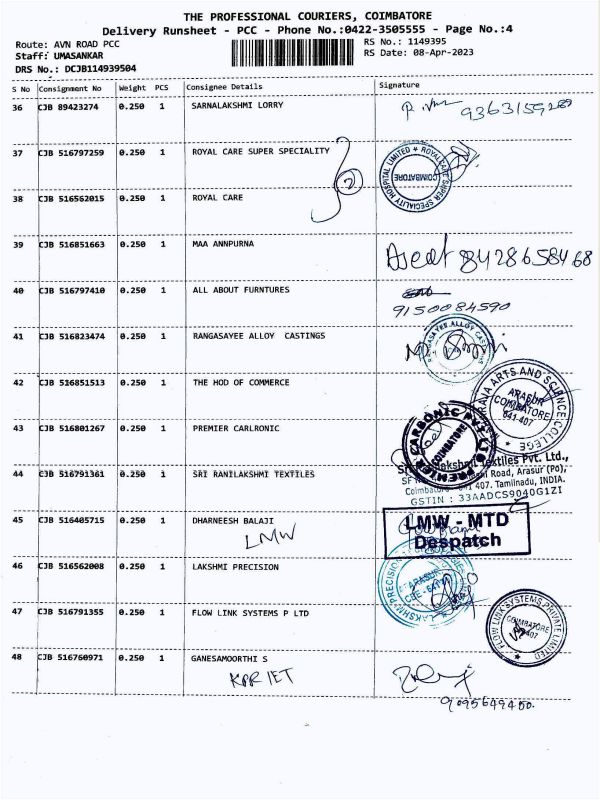 THE PROFESSIONAL COURIERS, COIMBATORE
Delivery Runsheet - PCC - Phone No.:0422-3505555 - Page No.:4
Route: AVN ROAD PCC
RS No.: 1149395
Staff: UMASANKAR
RS Date: 08-Apr-2023
DRS No.: DCJB114939504
S No Consignment No Weight PCS Consignee Details Signature
36 CJB 89423274 0.250 1 SARNALAKSHMI LORRY
37 CJB 516797259 0.250 1 ROYAL CARE SUPER SPECIALITY
SUPER SPECIALITY HOSPITAL LIMITED ★ ROYALCARE
COIMBATORE
38 CJB 516562015 0.250 1 ROYAL CARE
39 CJB 516851663 0.250 1 MAA ANNPURNA 8428658468
40 CJB 516797410 0.250 1 ALL ABOUT FURNTURES
9150084590
41 CJB 516823474 0.250 1 RANGASAYEE ALLOY CASTINGS
42 CJB 516851513 0.250 1 THE HOD OF COMMERCE
ARTS AND SCIENCE COLLEGE
ARASUR
COIMBATORE
641 407
43 CJB 516801267 0.250 1 PREMIER CARLRONIC
PREMIER CARBONIC PVT LTD
COIMBATORE
44 CJB 516791361 0.250 1 SRI RANILAKSHMI TEXTILES
Textiles Pvt. Ltd.,
Road, Arasur (Po),
Coimbatore 641 407. Tamilnadu, INDIA.
GSTIN : 33AADCS9040G1ZI
45 CJB 516405715 0.250 1 DHARNEESH BALAJI
LMW
LMW - MTD
Despatch
46 CJB 516562008 0.250 1 LAKSHMI PRECISION
LAKSHMI PRECISION
ARASUR
CBE - 641
47 CJB 516791355 0.250 1 FLOW LINK SYSTEMS P LTD
FLOW LINK SYSTEMS PRIVATE LIMITED
COIMBATORE
407
48 CJB 516760971 0.250 1 GANESAMOORTHI S
KPR IET
9095649400.